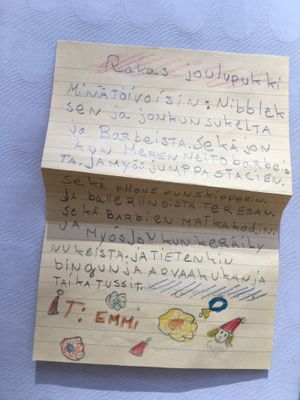 Rakas joulupukki
MINÄTOIVOISIN: Nibblek
sen ja jonkun sukelta
ja Barbeista. sekä jon
kun Meren Neito barbeis
ta. ja myös jumppa stacien.
sekä PHONE
ja balleriinoista Teresan.
sekä Barbien matkakodin.
ja Myös jonkun keräily
nukeista. ja tietenkin
bingun ja
taika tussit.
T: EMMI